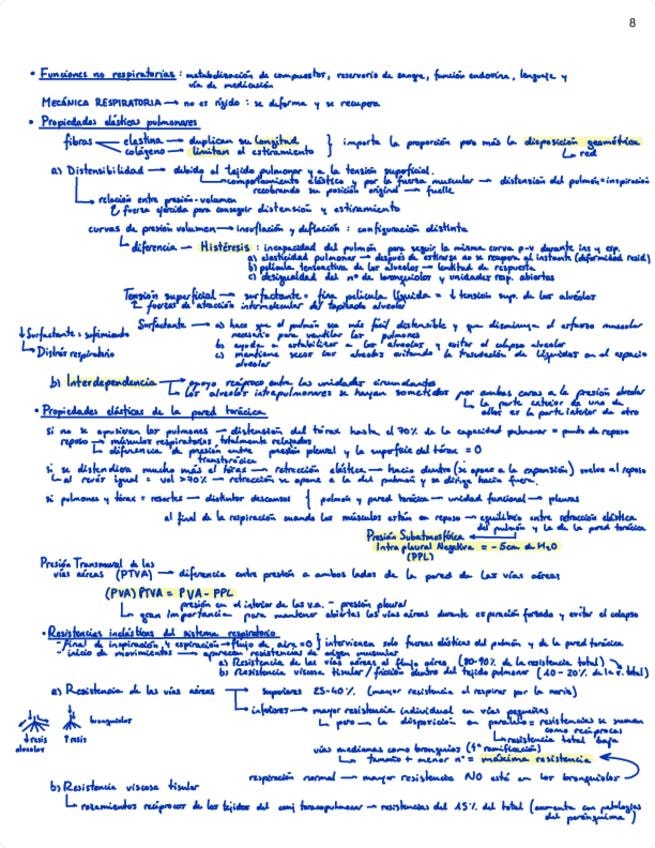 8
• Funciones no respiratorias: metabolización de compuestos, reservorio de sangre, función endocrina, lenguaje y
vía de medicación
MECÁNICA RESPIRATORIA → no es rígido: se deforma y se recupera
• Propiedades elásticas pulmonares
fibras elastina → duplican su longitud } importa la proporción pero más la disposición geométrica
colágeno → limitan el estiramiento
↳ red
a) Distensibilidad → debido al tejido pulmonar y a la tensión superficial.
↳ comportamiento elástico y por la fuerza muscular → distensión del pulmón = inspiración
recobrando su posición original → fuelle
↳ relación entre presión-volumen
fuerza ejercida para conseguir distensión y estiramiento
curvas de presión volumen → insuflación y deflación: configuración distinta
↳ diferencia → Histéresis: incapacidad del pulmón para seguir la misma curva p-v durante ins y esp.
a) elasticidad pulmonar → después de estirarse no se recupera al instante (deformidad resid)
b) película tensoactiva de los alveolos → lentitud de respuesta
c) desigualdad del nº de bronquiolos y unidades resp. abiertas
Tensión superficial → surfactante = fina película líquida = ↓ tensión sup. de los alvéolos
fuerzas de atracción intermolecular del tapizado alveolar
Surfactante → a) hace que el pulmón sea más fácil distensible y que disminuya el esfuerzo muscular
↓ Surfactante: sufrimiento
necesario para ventilar los pulmones
↳ Distrés respiratorio
b) ayuda a estabilizar a los alveolos y evitar el colapso alveolar
c) mantiene secos los alveolos evitando la trasudación de líquidos en el espacio
alveolar
b) Interdependencia → apoyo recíproco entre las unidades circundantes
↳ los alveolos intrapulmonares se hayan sometidos por ambas caras a la presión alveolar
↳ la parte exterior de uno de
ellos es la parte interior de otro
• Propiedades elásticas de la pared torácica
si no se opusieran los pulmones → distensión del tórax hasta el 70% de la capacidad pulmonar = punto de reposo
reposo → músculos respiratorios totalmente relajados
↳ diferencia de presión entre presión pleural y la superficie del tórax = 0
transtorácica
si se distendiera mucho más el tórax → retracción elástica → hacia dentro (si opone a la expansión) vuelve al reposo
↳ al revés igual = vol >70% → retracción se opone a la del pulmón y se dirige hacia fuera.
si pulmones y tórax = resortes → distintos descansos { pulmón y pared torácica → unidad funcional → pleuras
al final de la respiración cuando los músculos están en reposo → equilibrio entre retracción elástica
del pulmón y la de la pared torácica
Presión Subatmosférica
Intrapleural Negativa = -5cm de H2O
(PPL)
Presión Transmural de las
vías aéreas (PTVA) → diferencia entre presión a ambos lados de la pared de las vías aéreas
(PVA) PTVA = PVA - PPL
presión en el interior de las v.a. - presión pleural
↳ gran importancia para mantener abiertas las vías aéreas durante espiración forzada y evitar el colapso
• Resistencias inelásticas del sistema respiratorio
- Final de inspiración y espiración → flujo de aire = 0 } intervienen solo fuerzas elásticas del pulmón y de la pared torácica
- inicio de movimientos → aparecen resistencias de origen muscular
a) Resistencia de las vías aéreas al flujo aéreo (80-90% de la resistencia total)
b) Resistencia viscosa tisular / fricción dentro del tejido pulmonar (10-20% de la r. total)
a) Resistencia de las vías aéreas → superiores 25-40% (mayor resistencia al respirar por la nariz)
↳ inferiores → mayor resistencia individual en vías pequeñas
↳ pero → la disposición en paralelo = resistencias se suman
como recíprocas
↳ resistencia total baja
bronquiolos
↓ resis ↑ resis
alveolar
vías medianas como bronquios (1ª ramificación)
↳ tamaño + menor nº = máxima resistencia
respiración normal → mayor resistencia NO está en los bronquiolos
b) Resistencia viscosa tisular
↳ rozamientos recíprocos de los tejidos del conj toracopulmonar → resistencias del 15% del total (aumenta con patologías
del parénquima)